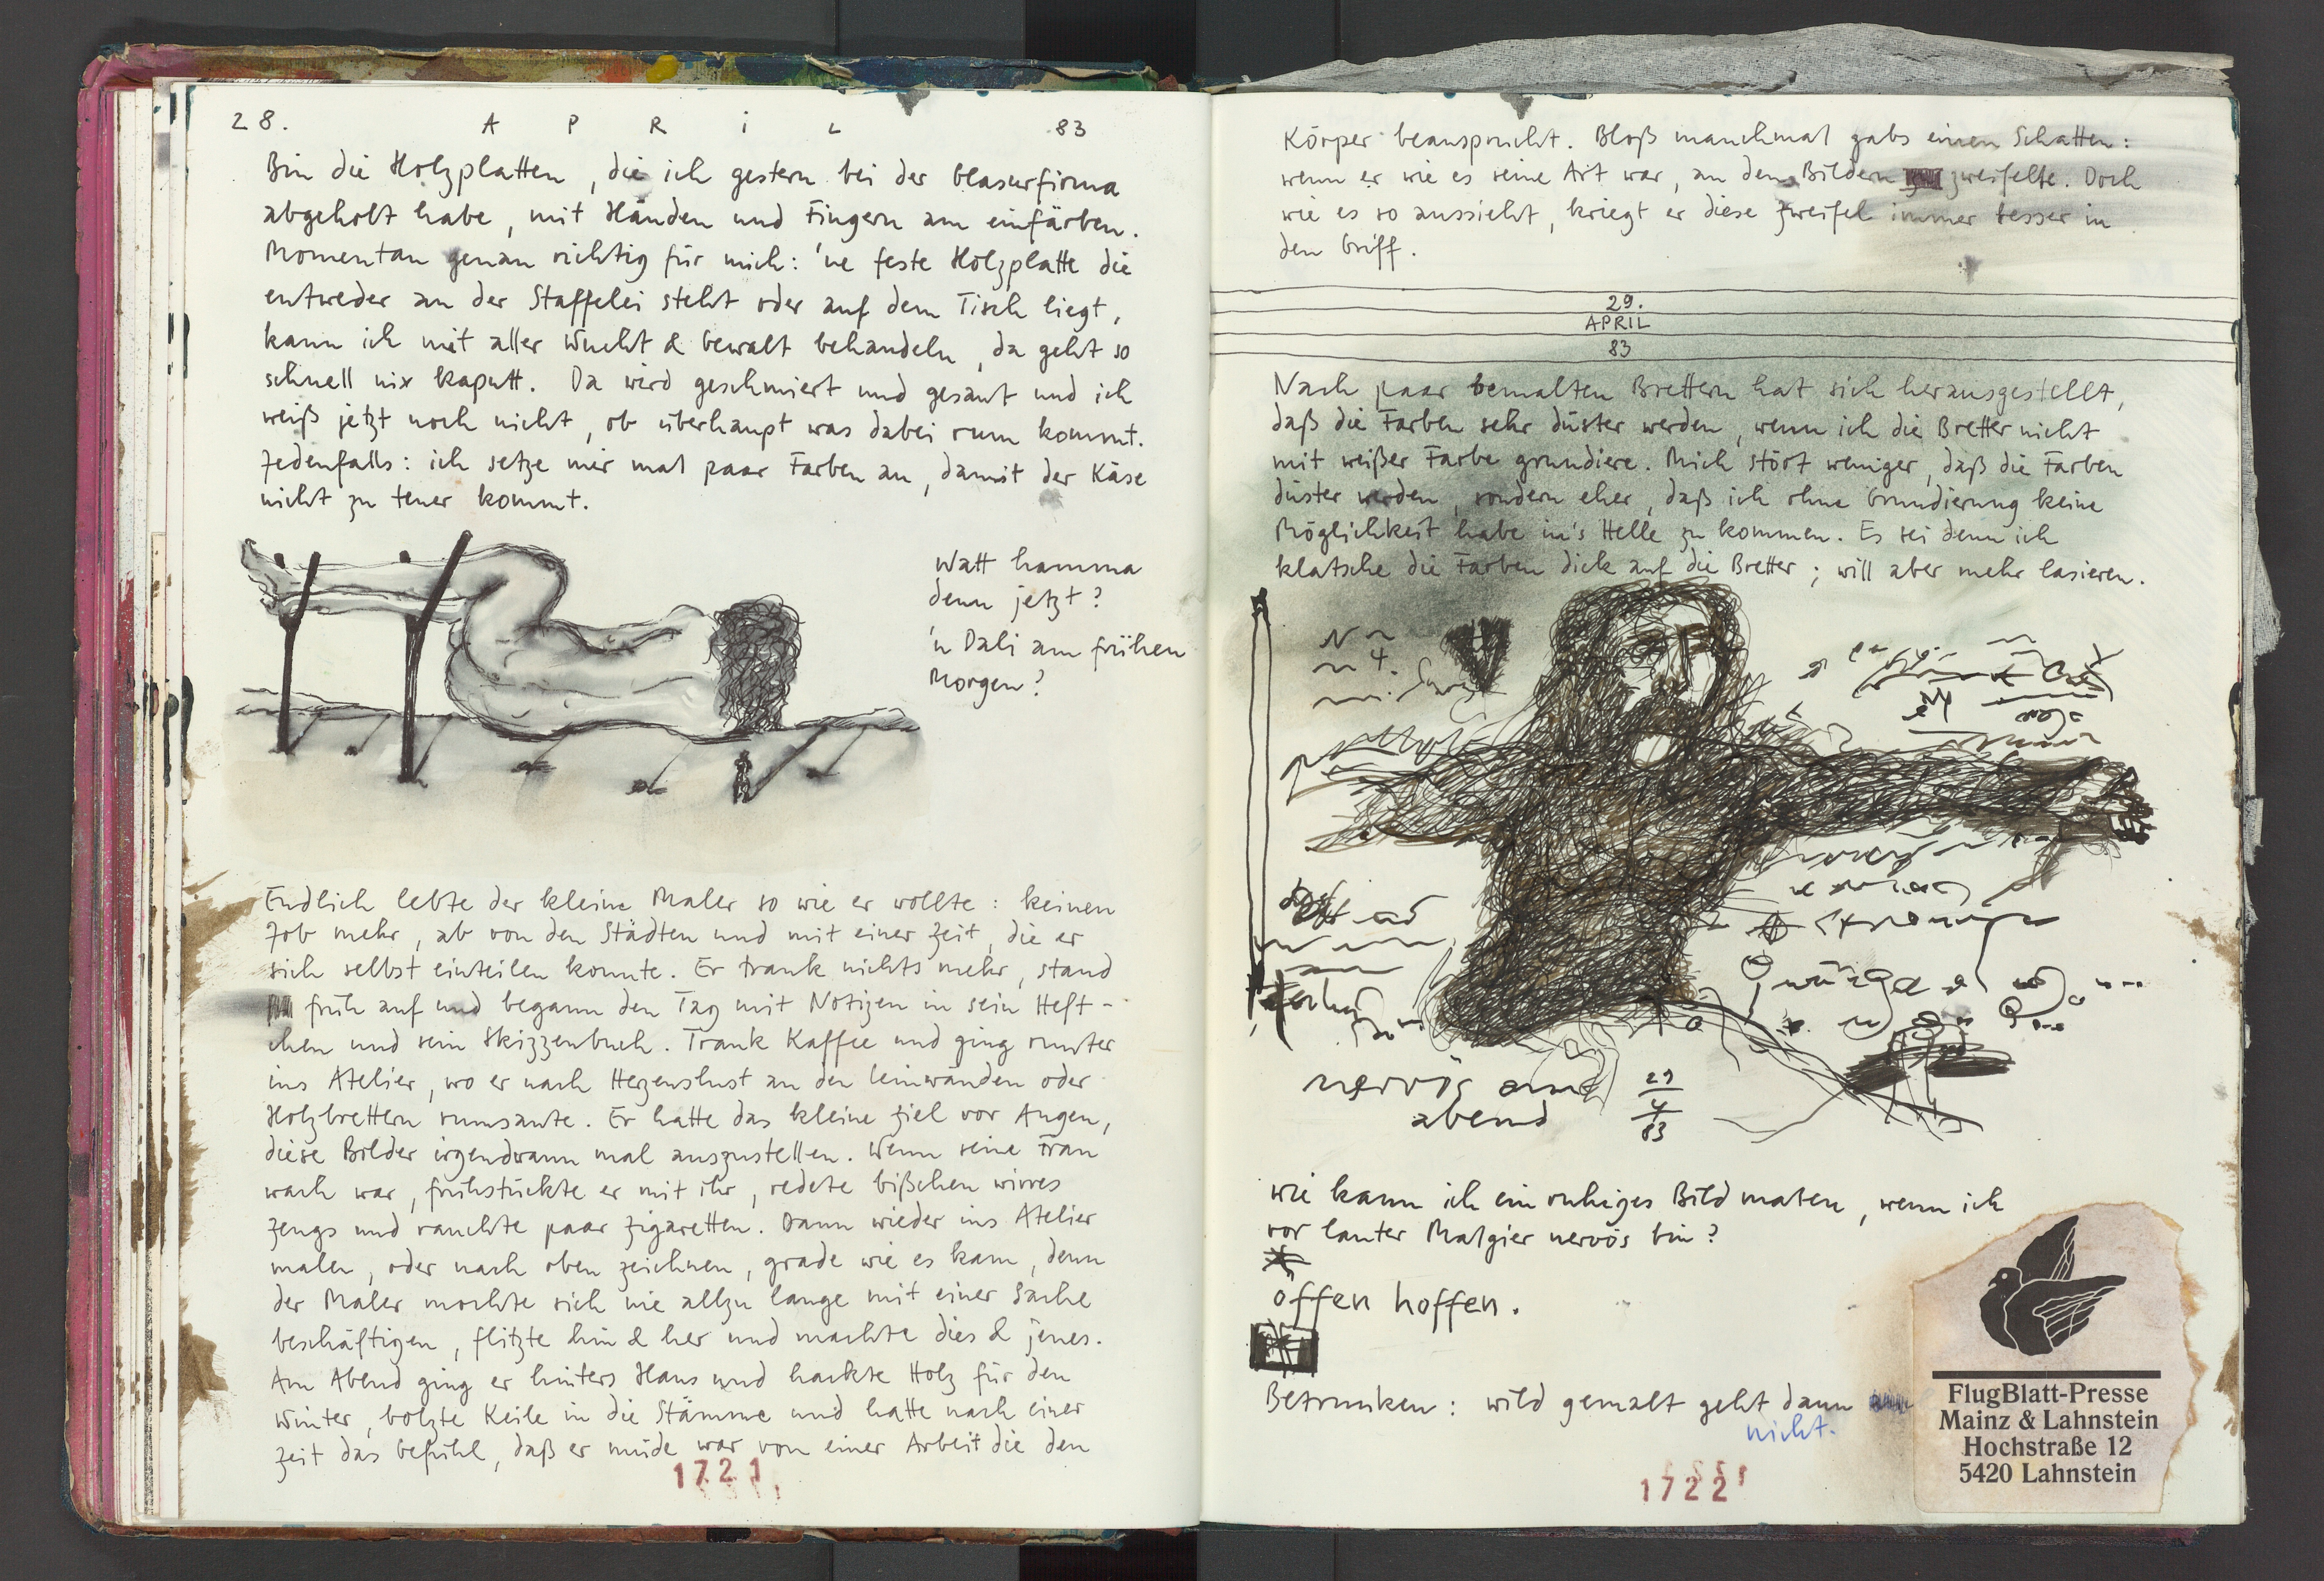 28. APRiL 83
Bin die Holzplatten, die ich gestern bei der Glasurfirma
abgeholt habe, mit Händen und Fingern am einfärben.
Momentan genau richtig für mich: 'ne feste Holzplatte die
entweder an der Staffelei steht oder auf dem Tisch liegt,
kann ich mit aller Wucht & Gewalt behandeln, da geht so
schnell nix kaputt. Da wird geschmiert und gesaut und ich
weiß jetzt noch nicht, ob überhaupt was dabei rum kommt.
Jedenfalls: ich setze mir mal paar Farben an, damit der Käse
nicht zu teuer kommt.
Watt hamma
denn jetzt?
'n Dali am frühen
Morgen?
Endlich lebte der kleine Maler so wie er wollte: keinen
Job mehr, ab von den Städten und mit einer Zeit, die er
sich selbst einteilen konnte. Er trank nichts mehr, stand
früh auf und begann den Tag mit Notizen in sein Heft-
chen und sein Skizzenbuch. Trank Kaffee und ging runter
ins Atelier, wo er nach Herzenslust an den Leinwänden oder
Holzbrettern rumsaute. Er hatte das kleine Ziel vor Augen,
diese Bilder irgendwann mal auszustellen. Wenn seine Frau
wach war, frühstückte er mit ihr, redete bißchen wirres
Zeugs und rauchte paar Zigaretten. Dann wieder ins Atelier
malen, oder nach oben zeichnen, grade wie es kam, denn
der Maler mochte sich nie allzu lange mit einer Sache
beschäftigen, flitzte hin & her und machte dies & jenes.
Am Abend ging er hinters Haus und hackte Holz für den
Winter, bolzte Keile in die Stämme und hatte nach einer
Zeit das Gefühl, daß er müde war von einer Arbeit die den
1721
Körper beansprucht. Bloß manchmal gabs einen Schatten:
wenn er wie es seine Art war, an den Bildern zweifelte. Doch
wie es so aussieht, kriegt er diese Zweifel immer besser in
den Griff.
29.
APRIL
83
Nach paar bemalten Brettern hat sich herausgestellt,
daß die Farben sehr düster werden, wenn ich die Bretter nicht
mit weißer Farbe grundiere. Mich stört weniger, daß die Farben
düster werden, sondern eher, daß ich ohne Grundierung keine
Möglichkeit habe in's Helle zu kommen. Es sei denn ich
klatsche die Farben dick auf die Bretter; will aber mehr lasieren.
nervös am
abend
29
4
83
Wie kann ich ein ruhiges Bild malen, wenn ich
vor lauter Malgier nervös bin?
öffen hoffen.
Betrunken: wild gemalt geht dann
nicht.
1722
FlugBlatt-Presse
Mainz & Lahnstein
Hochstraße 12
5420 Lahnstein